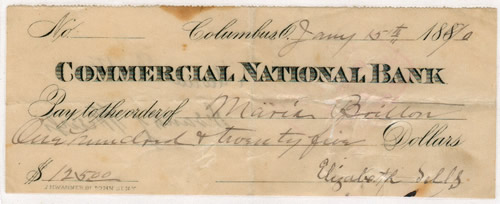 No Columbus, O. Jany 15th 1880
COMMERCIAL NATIONAL BANK
Pay to the order of Maria Britton
One hundred & twenty five Dollars
$ 125.00 Elizabeth